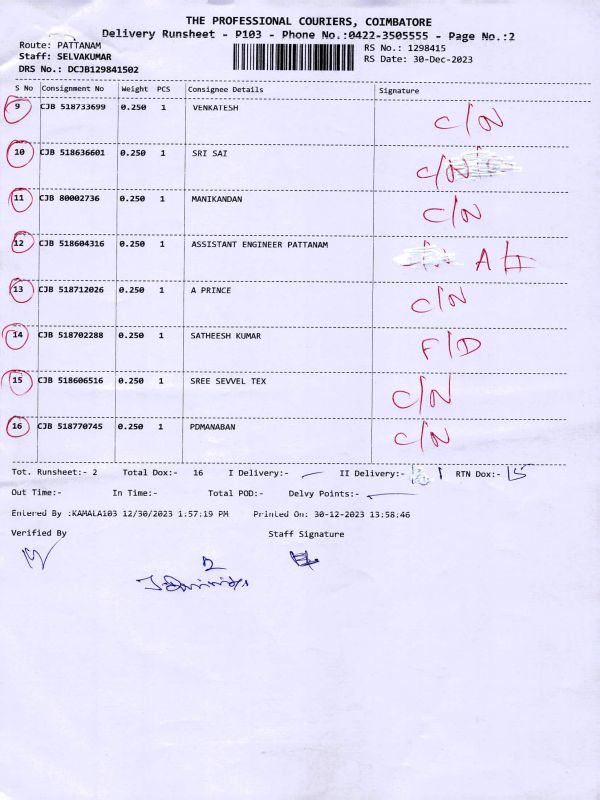 THE PROFESSIONAL COURIERS, COIMBATORE
Delivery Runsheet - P103 - Phone No.:0422-3505555 - Page No.:2
Route: PATTANAM
RS No.: 1298415
Staff: SELVAKUMAR
RS Date: 30-Dec-2023
DRS No.: DCJB129841502
S No Consignment No Weight PCS Consignee Details Signature
9 CJB 518733699 0.250 1 VENKATESH C/N
10 CJB 518636601 0.250 1 SRI SAI C/N
11 CJB 80002736 0.250 1 MANIKANDAN C/N
12 CJB 518604316 0.250 1 ASSISTANT ENGINEER PATTANAM
13 CJB 518712026 0.250 1 A PRINCE C/N
14 CJB 518702288 0.250 1 SATHEESH KUMAR F/D
15 CJB 518606516 0.250 1 SREE SEVVEL TEX C/N
16 CJB 518770745 0.250 1 PDMANABAN C/N
Tot. Runsheet:- 2 Total Dox:- 16 I Delivery:- II Delivery:- 1 RTN Dox:- 15
Out Time:- In Time:- Total POD:- Delvy Points:-
Entered By :KAMALA103 12/30/2023 1:57:19 PM Printed On: 30-12-2023 13:58:46
Verified By Staff Signature